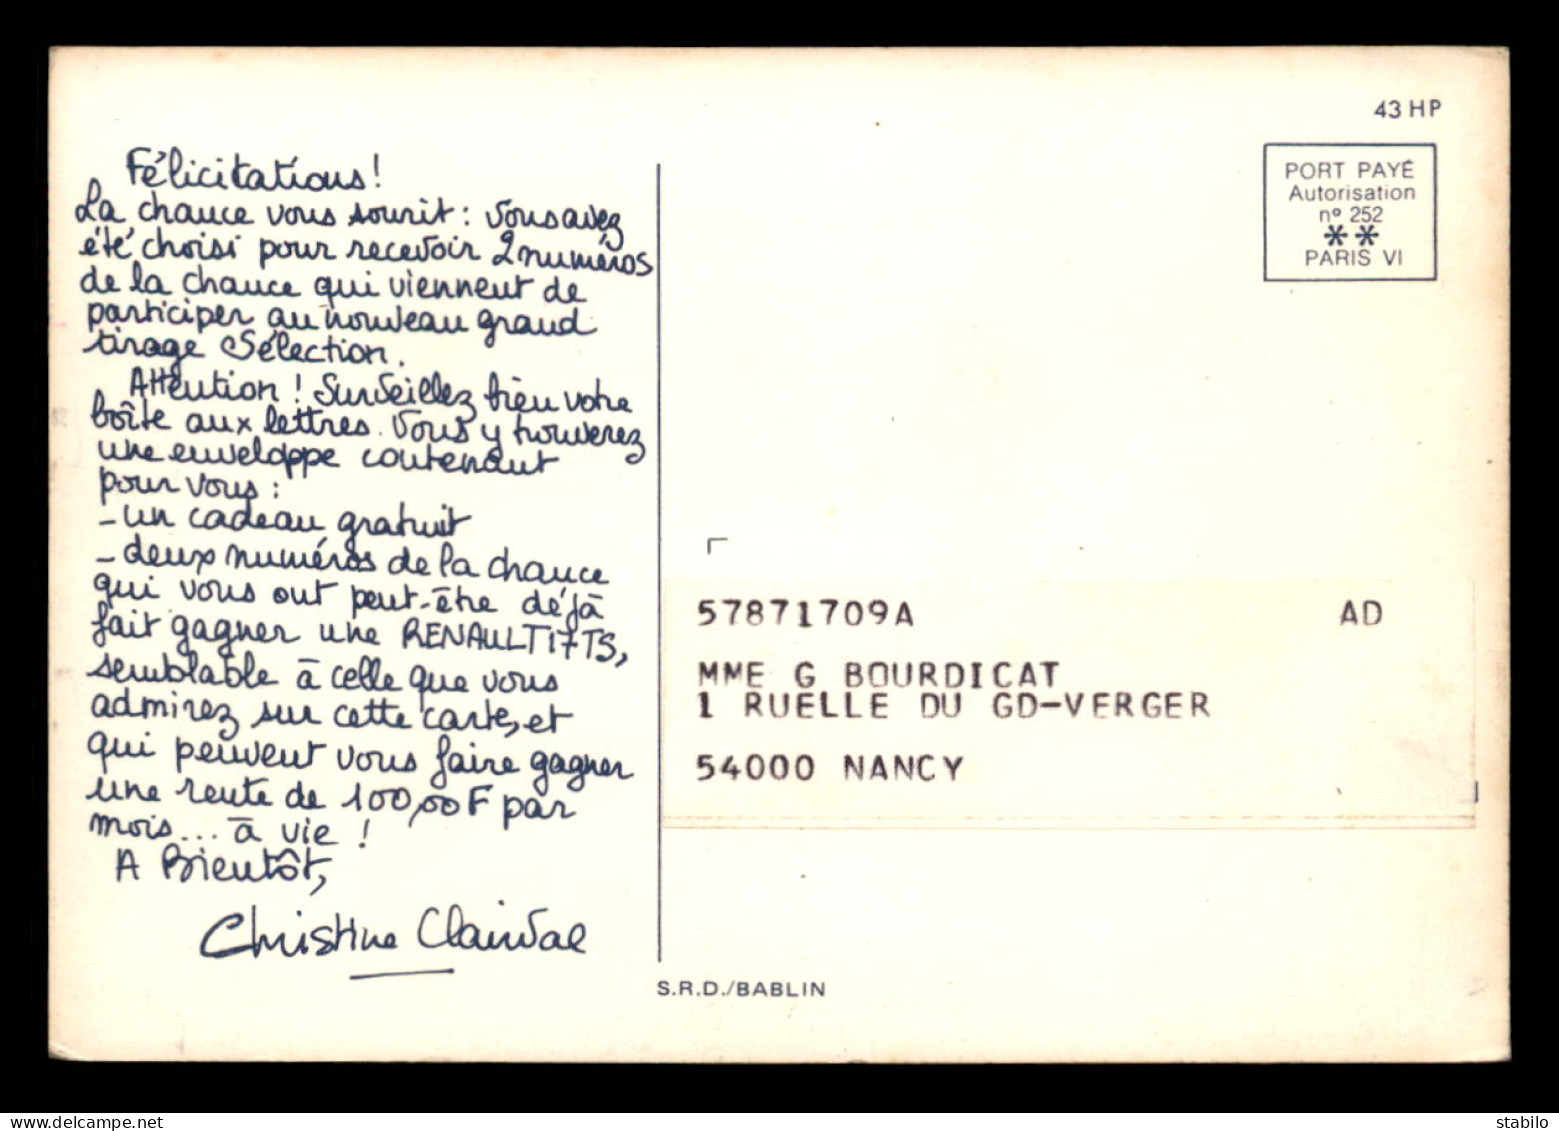 43 HP
PORT PAYÉ
Autorisation
nº 252
**
PARIS VI
Félicitations!
La chance vous sourit : Vous avez
été choisi pour recevoir 2 numéros
de la chance qui viennent de
participer au nouveau grand
tirage Sélection.
Attention ! Surveillez bien votre
boîte aux lettres. Vous y trouverez
une enveloppe contenant
pour vous :
- un cadeau gratuit
- deux numéros de la chance
qui vous ont peut-être déjà
fait gagner une RENAULT 17 TS,
semblable à celle que vous
admirez sur cette carte, et
qui peuvent vous faire gagner
une rente de 100,00F par
mois... à vie !
A Bientôt,
Christine Clairval
57871709A AD
MME G BOURDICAT
1 RUELLE DU GD-VERGER
54000 NANCY
S.R.D./BABLIN
stabilo
www.delcampe.net